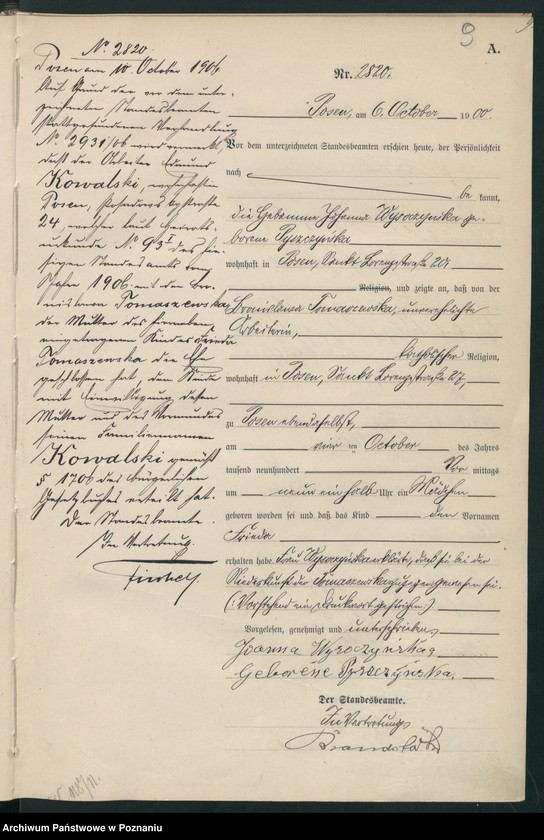 9
A.
Nr. 2820.
Posen, am 6. October 1900.
Vor dem unterzeichneten Standesbeamten erschien heute, der Persönlichkeit
nach
be kannt,
die Hebamme Johanna Wysoczynska ge-
borene Pyszczynska
wohnhaft in Posen, Sankt Lorenzstraße 20,
Religion, und zeigte an, daß von der
Bronislawa Tomaszewska, unverehelichte
Arbeiterin,
katholischer Religion,
wohnhaft in Posen, Sankt Lorenzstraße 27,
zu Posen ebendaselbst,
am vier ten October des Jahres
tausend neunhundert Vor mittags
um neun einhalb Uhr ein Mädchen
geboren worden sei und daß das Kind den Vornamen
Frieda
erhalten habe. Frau Wysoczynska erklärte, daß sie bei der
Niederkunft der Tomaszewska zugegen gewesen sei.
(: Vorstehend ein Druckwort gestrichen.)
Vorgelesen, genehmigt und unterschrieben
Joanna Wysoczyńska
Geborene Pyszczyńska.
Der Standesbeamte.
In Vertretung
No 2820.
Posen am 10 October 1906
Auf Grund der vor dem unter-
zeichneten Standesbeamten
stattgefundenen Verhandlung
No 2931/06 wird vermerkt,
daß der Arbeiter Edmund
Kowalski, wohnhaft in
Posen,
24, welcher laut Heirats-
urkunde No 93 des hie-
sigen Standesamts vom
Jahre 1906 mit der Bro-
nislawa Tomaszewska
der Mutter des hierneben
eingetragenen Kindes Frieda
Tomaszewska die Ehe
geschlossen hat, dem Kinde
mit Einwilligung dessen
Mutter und des Vormundes
seinen Familiennamen
Kowalski gemäß
§ 1706 des Bürgerlichen
Gesetzbuches erteilt hat.
Der Standesbeamte.
In Vertretung.
Archiwum Państwowe w Poznaniu